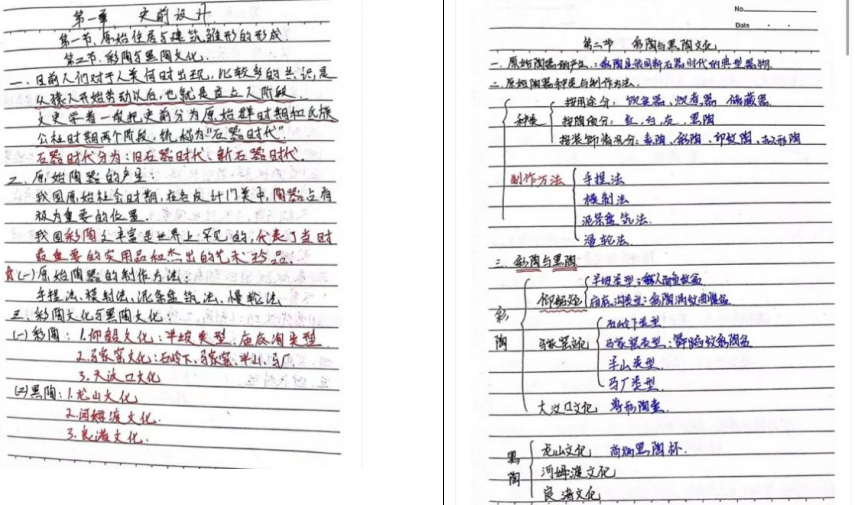 第一章 史前设计
第一节.原始住居与建筑雏形的形成
第二节.彩陶与黑陶文化.
一.目前人们对于人类何时出现,比较多的共识是
从猿人开始劳动以后,也就是直立人阶段.
文史学者一般把史前分为原始群时期和氏族
公社时期两个阶段,统称为"石器时代"
石器时代分为:旧石器时代、新石器时代.
二.原始陶器的产生:
我国原始社会时期,在各设计门类中,陶器占有
极为重要的位置.
我国彩陶之丰富是世界上罕见的,代表了当时
最重要的实用品和杰出的艺术珍品.
(一)原始陶器的制作方法:
手捏法、模制法、泥条盘筑法、慢轮法
三.彩陶文化与黑陶文化:
(一)彩陶:1.仰韶文化:半坡类型、庙底沟类型
2.马家窑文化:石岭下、马家窑、半山、马厂
3.大汶口文化
(二)黑陶:1.龙山文化
2.河姆渡文化.
3.良渚文化.
No.
Date
第二节 彩陶与黑陶文化.
一.原始陶器的产生:彩陶是我国新石器时代的典型器物.
二.原始陶器种类与制作方法.
种类
按用途分:饮食器、汲煮器 储藏器
按陶质分:红、白、灰、黑陶
按装饰情况分:素陶、彩陶、印纹陶、
制作方法
手捏法
模制法
泥条盘筑法
慢轮法.
三.彩陶与黑陶
彩陶
仰韶
半坡类型:人面鱼纹盆
庙底沟类型:彩陶涡纹曲腹盆
马家窑文化
石岭下类型
马家窑类型:舞蹈纹彩陶盆
半山类型
马厂类型.
大汶口文化 兽形陶壶.
黑陶
龙山文化 高柄黑陶杯.
河姆渡文化
良渚文化